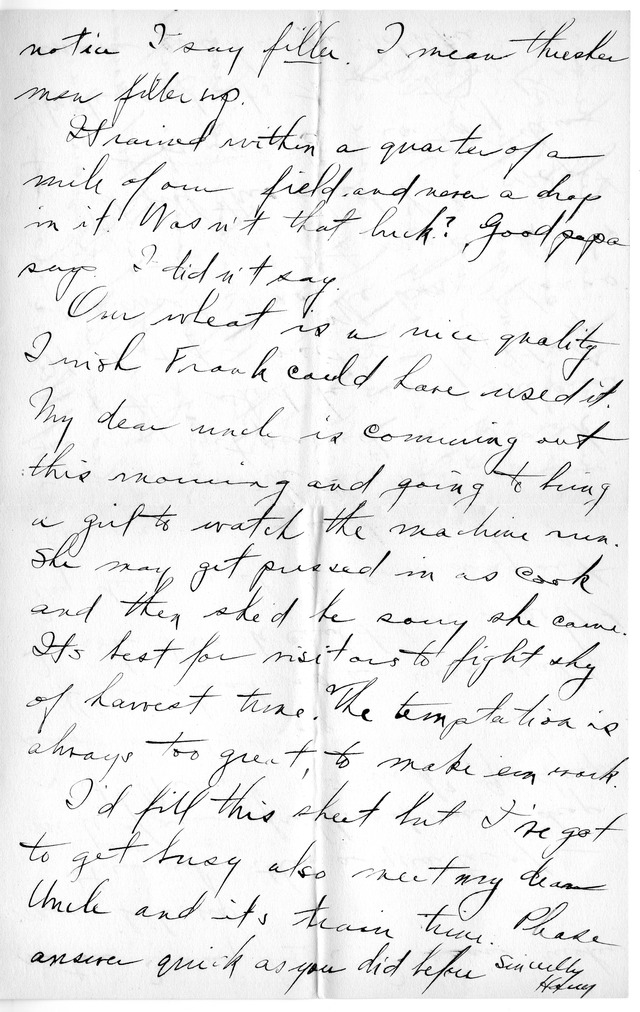 notice I say filler. I mean thresher
men filler up.
It rained within a quarter of a
mile of our field and never a drop
in it. Wasn't that luck? Good papa
says. I didn't say.
Our wheat is a nice quality
I wish Frank could have used it.
My dear uncle is comming out
this morning and going to bring
a girl to watch the machine run.
She may get pressed in as cook
and then she'd be sorry she came.
It's best for visitors to fight shy
of harvest time. The temptation is
always too great, to make em work.
I'd fill this sheet but I've got
to get busy also meet my dear
Uncle and it's train time. Please
answer quick as you did before Sincerely
Harry